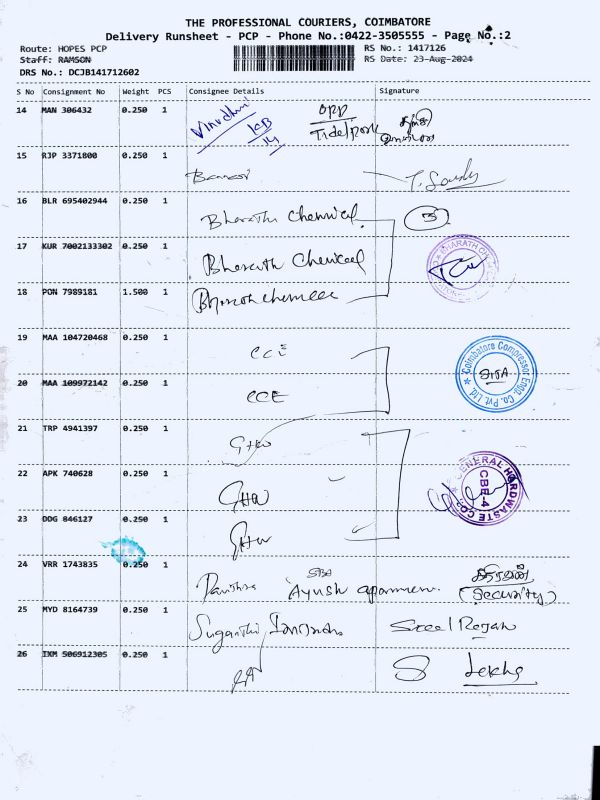 THE PROFESSIONAL COURIERS, COIMBATORE
Delivery Runsheet - PCP - Phone No.:0422-3505555 - Page No.:2
Route: HOPES PCP
RS No.: 1417126
Staff: RAMSON
RS Date: 23-Aug-2024
DRS No.: DCJB141712602
S No Consignment No Weight PCS Consignee Details Signature
14 MAN 306432 0.250 1 OPP
Tidelpark
15 RJP 3371800 0.250 1
16 BLR 695402944 0.250 1 Bharath Chemical 3
17 KUR 7002133302 0.250 1 Bharath Chemical
18 PON 7989181 1.500 1
19 MAA 104720468 0.250 1 CCE
Coimbatore Compressor Engg. Co. Pvt. Ltd.
20 MAA 109972142 0.250 1 CCE
21 TRP 4941397 0.250 1 GHW
22 APK 740628 0.250 1 GHW
GENERAL HARDWASTE CO.
CBE-4
23 DDG 846127 0.250 1 GHW
24 VRR 1743835 0.250 1 Ayush
(Security)
25 MYD 8164739 0.250 1 Suganthi
26 IXM 506912305 0.250 1 Lekha